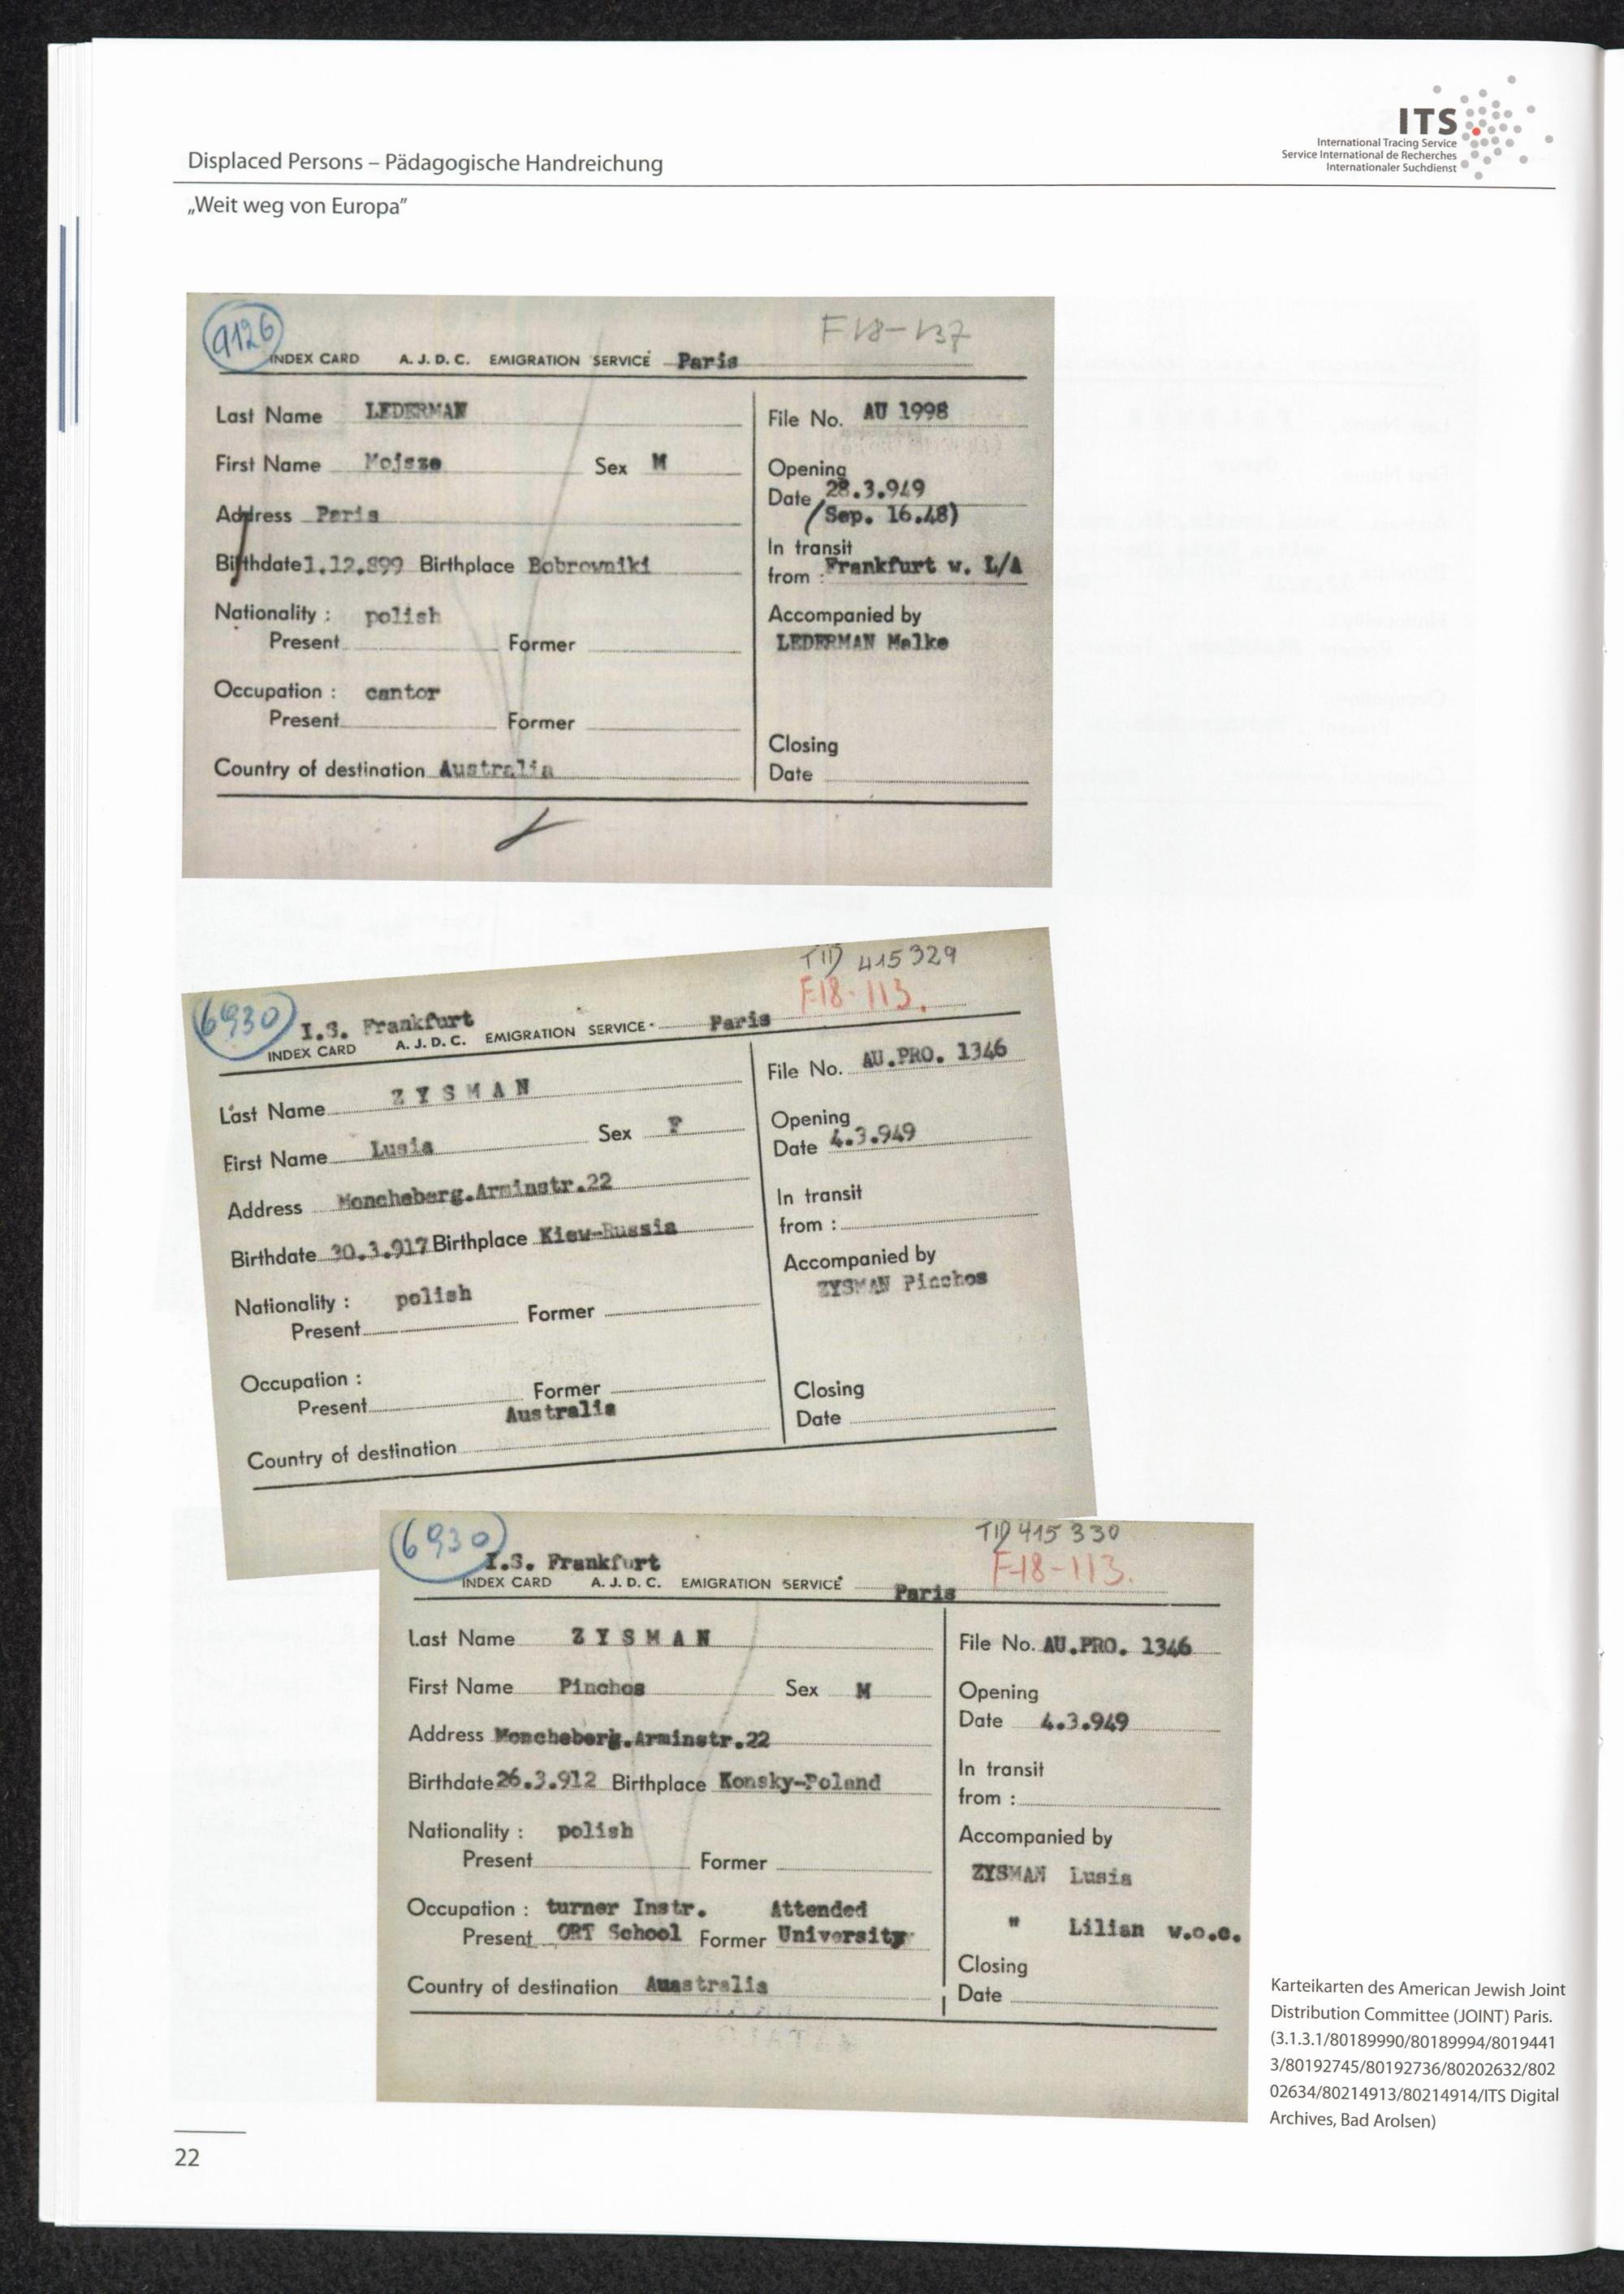 ITS
International Tracing Service
Service International de Recherches
Internationaler Suchdienst
Displaced Persons – Pädagogische Handreichung
„Weit weg von Europa”
9126
F18-137
INDEX CARD A. J. D. C. EMIGRATION SERVICE Paris
Last Name LEDERMAN
First Name Mojsze Sex M
Address Paris
Birthdate 1.12.899 Birthplace Bobrowniki
Nationality : polish
Present Former
Occupation : cantor
Present Former
Country of destination Australia
File No. AU 1998
Opening
Date 28.3.949
(Sep. 16.48)
In transit
from : Frankfurt w. L/A
Accompanied by
LEDERMAN Malke
Closing
Date
6930
TID 415329
F18-113.
I.S. Frankfurt
INDEX CARD A. J. D. C. EMIGRATION SERVICE Paris
Last Name ZYSMAN
First Name Lusia Sex F
Address Moncheberg.Arminstr.22
Birthdate 30.3.917 Birthplace Kiew-Russia
Nationality : polish
Present Former
Occupation :
Present Former
Australia
Country of destination
File No. AU.PRO. 1346
Opening
Date 4.3.949
In transit
from :
Accompanied by
ZYSMAN Pinchos
Closing
Date
6930
TID 415 330
F-18-113.
I.S. Frankfurt
INDEX CARD A. J. D. C. EMIGRATION SERVICE Paris
Last Name ZYSMAN
First Name Pinchos Sex M
Address Moncheberg.Arminstr.22
Birthdate 26.3.912 Birthplace Konsky-Poland
Nationality : polish
Present Former
Occupation : turner Instr. Attended
Present ORT School Former University
Country of destination Auastralia
File No. AU.PRO. 1346
Opening
Date 4.3.949
In transit
from :
Accompanied by
ZYSMAN Lusia
" Lilian w.o.c.
Closing
Date
Karteikarten des American Jewish Joint
Distribution Committee (JOINT) Paris.
(3.1.3.1/80189990/80189994/8019441
3/80192745/80192736/80202632/802
02634/80214913/80214914/ITS Digital
Archives, Bad Arolsen)
22